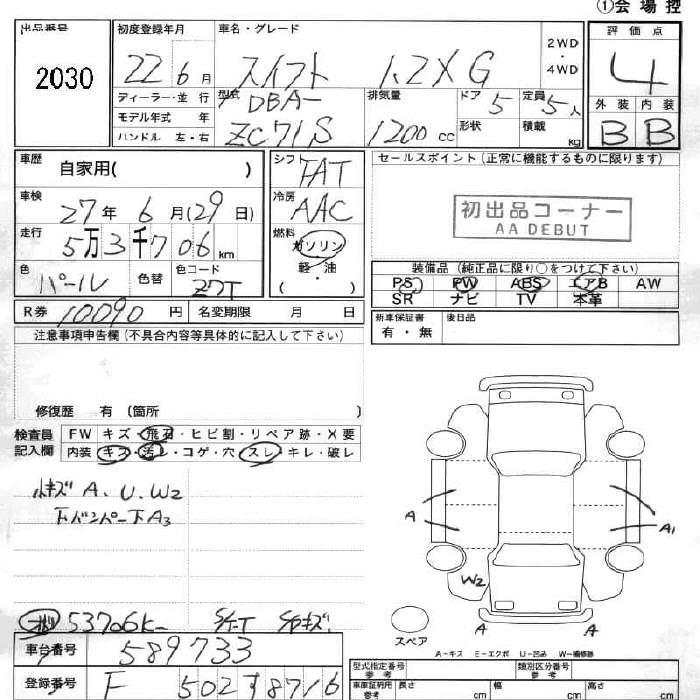 ①会場控
出品番号
2030
初度登録年月
22 6月
車名・グレード
スイフト 1.2XG
2WD
・
4WD
評価点
4
外装 内装
B B
ディーラー・並行
モデル年式 年
ハンドル 左・右
型式
DBA-
ZC71S
排気量
1200cc
ドア 5
形状
定員 5人
積載 kg
車歴
自家用( )
車検
27年 6月(29日)
走行
5万3千706km
色
パール
色替
色コード
Z7T
シフト
FAT
冷房
AAC
燃料
ガソリン
・
軽・油
( )
セールスポイント (正常に機能するものに限ります)
初出品コーナー
AA DEBUT
装備品 (純正品に限り○をつけて下さい)
PS PW ABS エアB AW
SR ナビ TV 本革
R券 10090円 名変期限 月 日
新車保証書
有・無
後日品
注意事項申告欄 (不具合内容等具体的に記入して下さい)
修復歴 有 (箇所 )
検査員
記入欄
FW キズ・飛石・ヒビ割・リペア跡・X要
内装 キズ・汚レ・コゲ・穴・スレ・キレ・破レ
小キズ A、U、W2
下バンパー下A3
A
A1
W2
A A
スペア
A-キズ E-エクボ U-凹み W-補修跡
53706K-
車台番号
589733
登録番号
F 502 す 8716
型式指定番号
参考
類別区分番号
参考
車庫証明用
参考
長さ cm
幅 cm
高さ cm